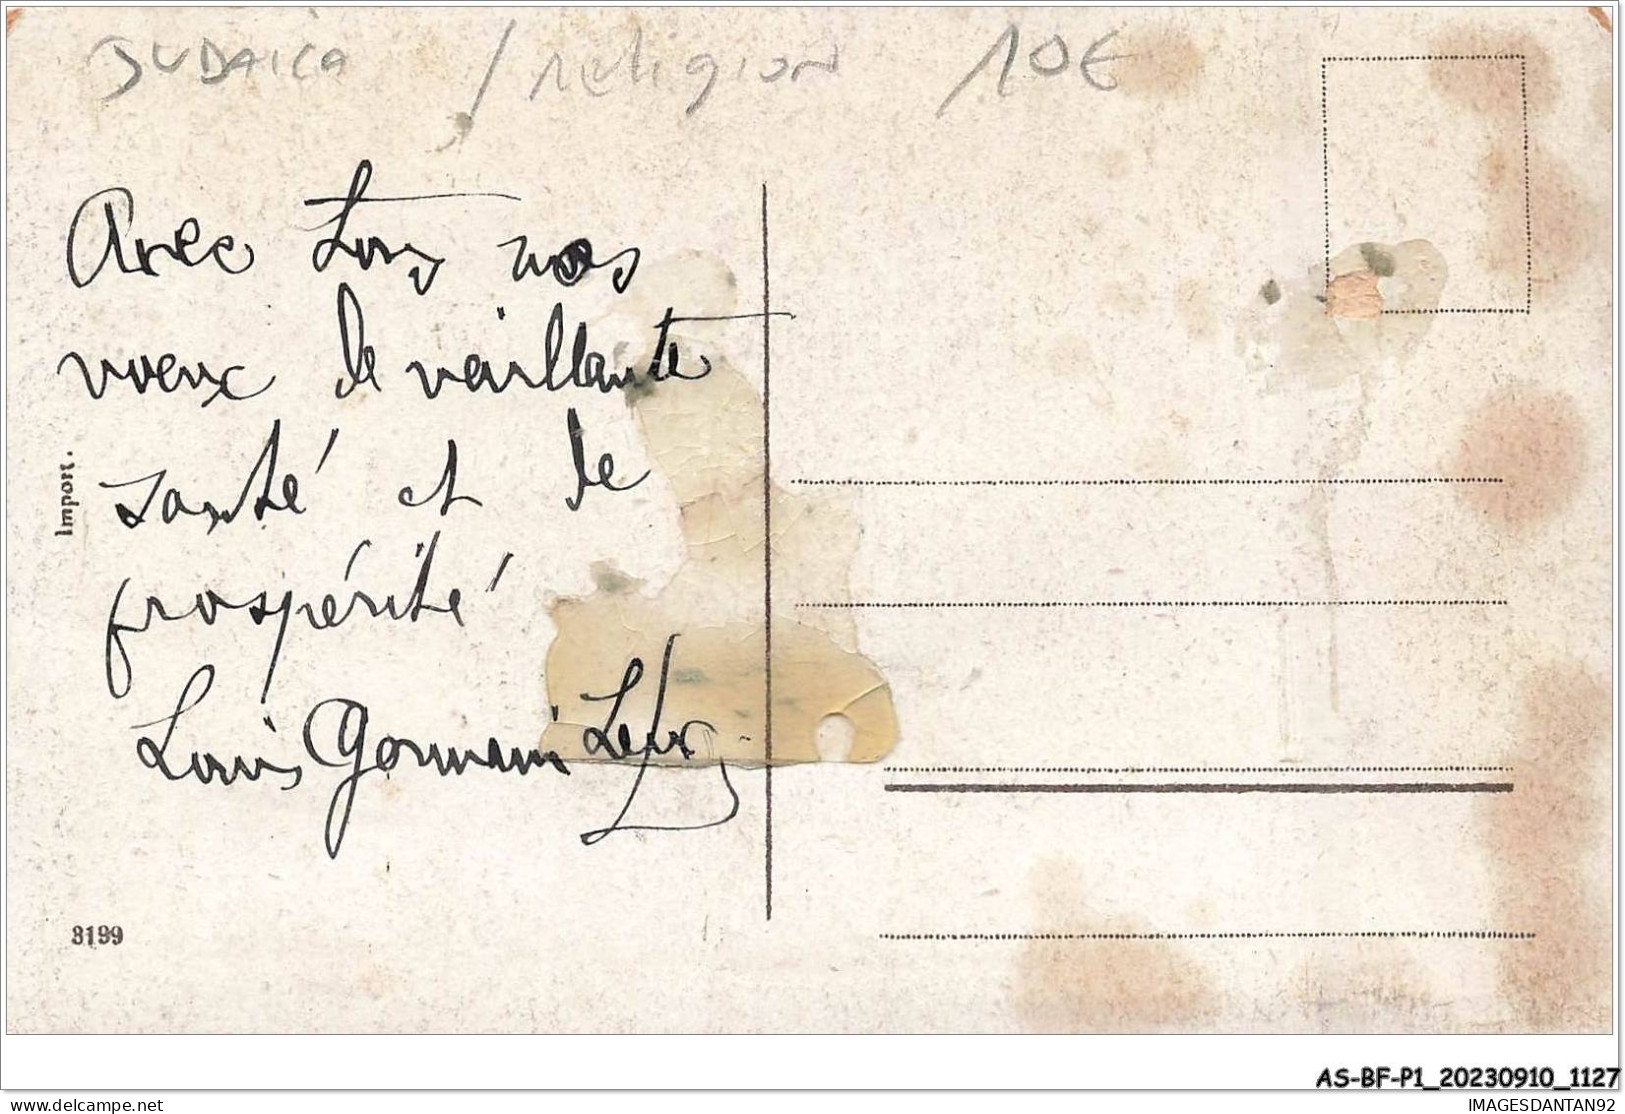 JUDAICA / religion 10€
Avec tous nos
voeux de vaillante
santé et de
prospérité
Louis Germain Lévy
Import.
3199
AS-BF-P1_20230910_1127
delcampe.net
IMAGESDANTAN92